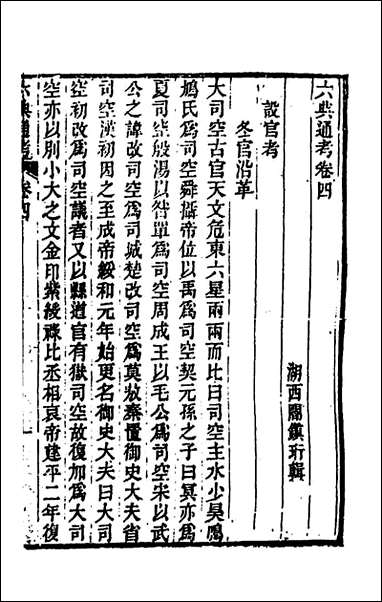 六典通考卷四
湖西閻鎮珩輯
設官考
冬官沿革
大司空古官天文危東六星兩兩而比曰司空主水少昊鳲
鳩氏爲司空舜攝帝位以禹爲司空契元孫之子曰冥亦爲
夏司空殷湯以咎單爲司空周成王以毛公爲司空宋以武
公之諱改司空爲司城楚改司空爲莫敖秦置御史大夫省
司空漢初因之至成帝綏和元年始更名御史大夫曰大司
空初改爲司空議者又以縣道官有獄司空故復加爲大司
空亦以別小大之文金印紫綬祿比丞相哀帝建平二年復
六典通考 卷四
一